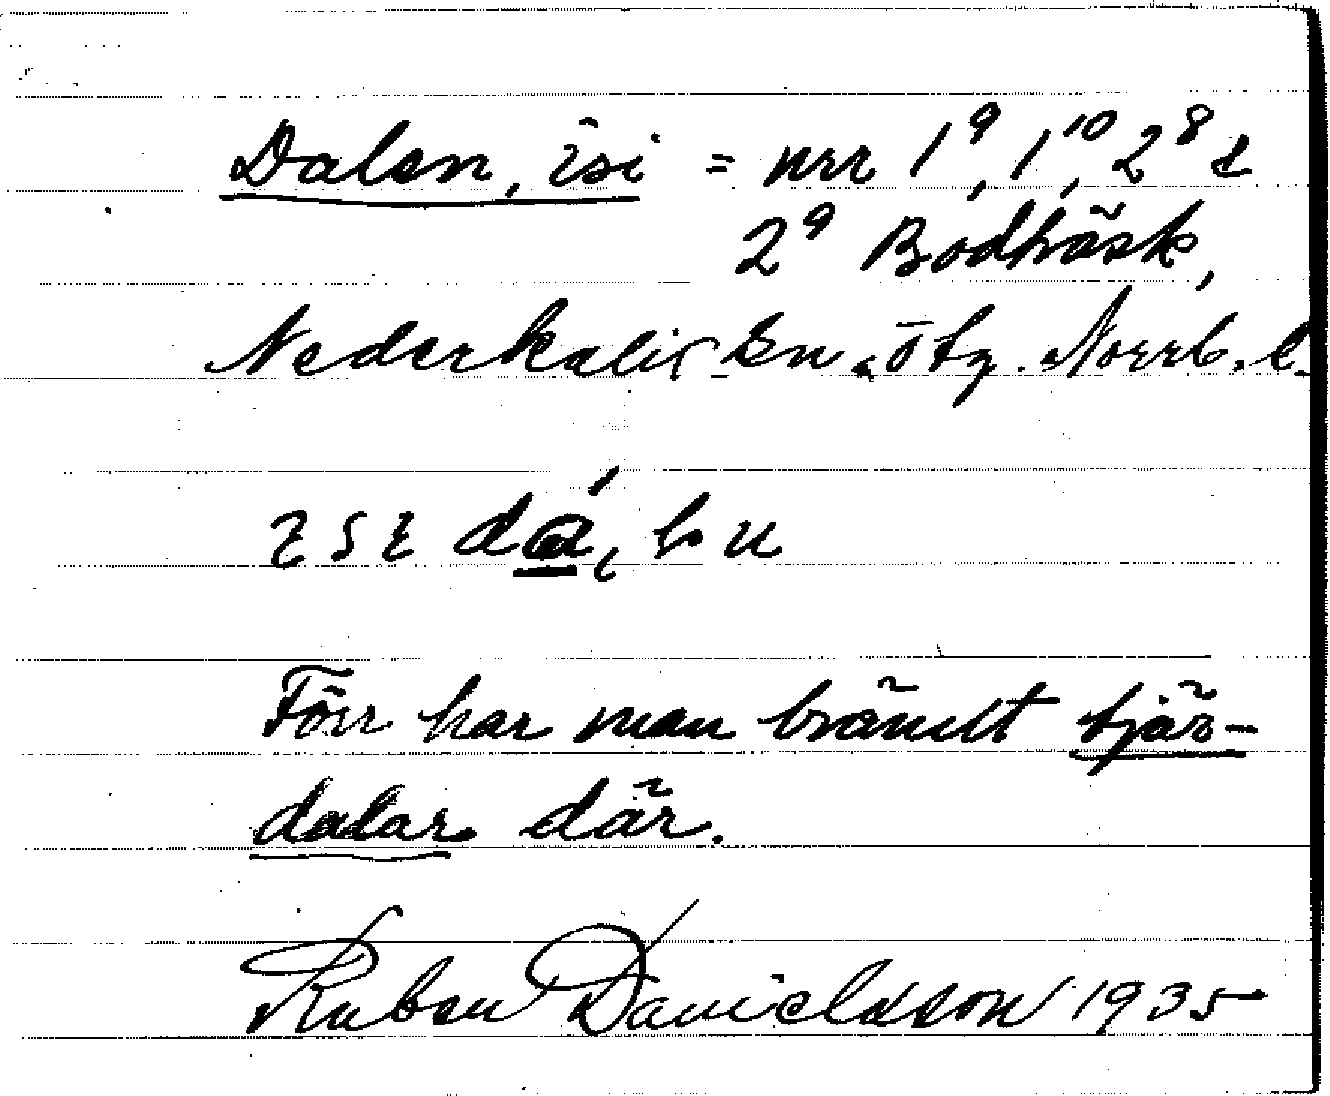 Dalen, isi = nrr 1⁹, 1¹⁰, 2⁸ &
2⁹ Bodträsk,
Nederkalix sn. ötg. Norrb. l.
Förr har man brändt tjär-
dalar där.
Ruben Danielsson 1935